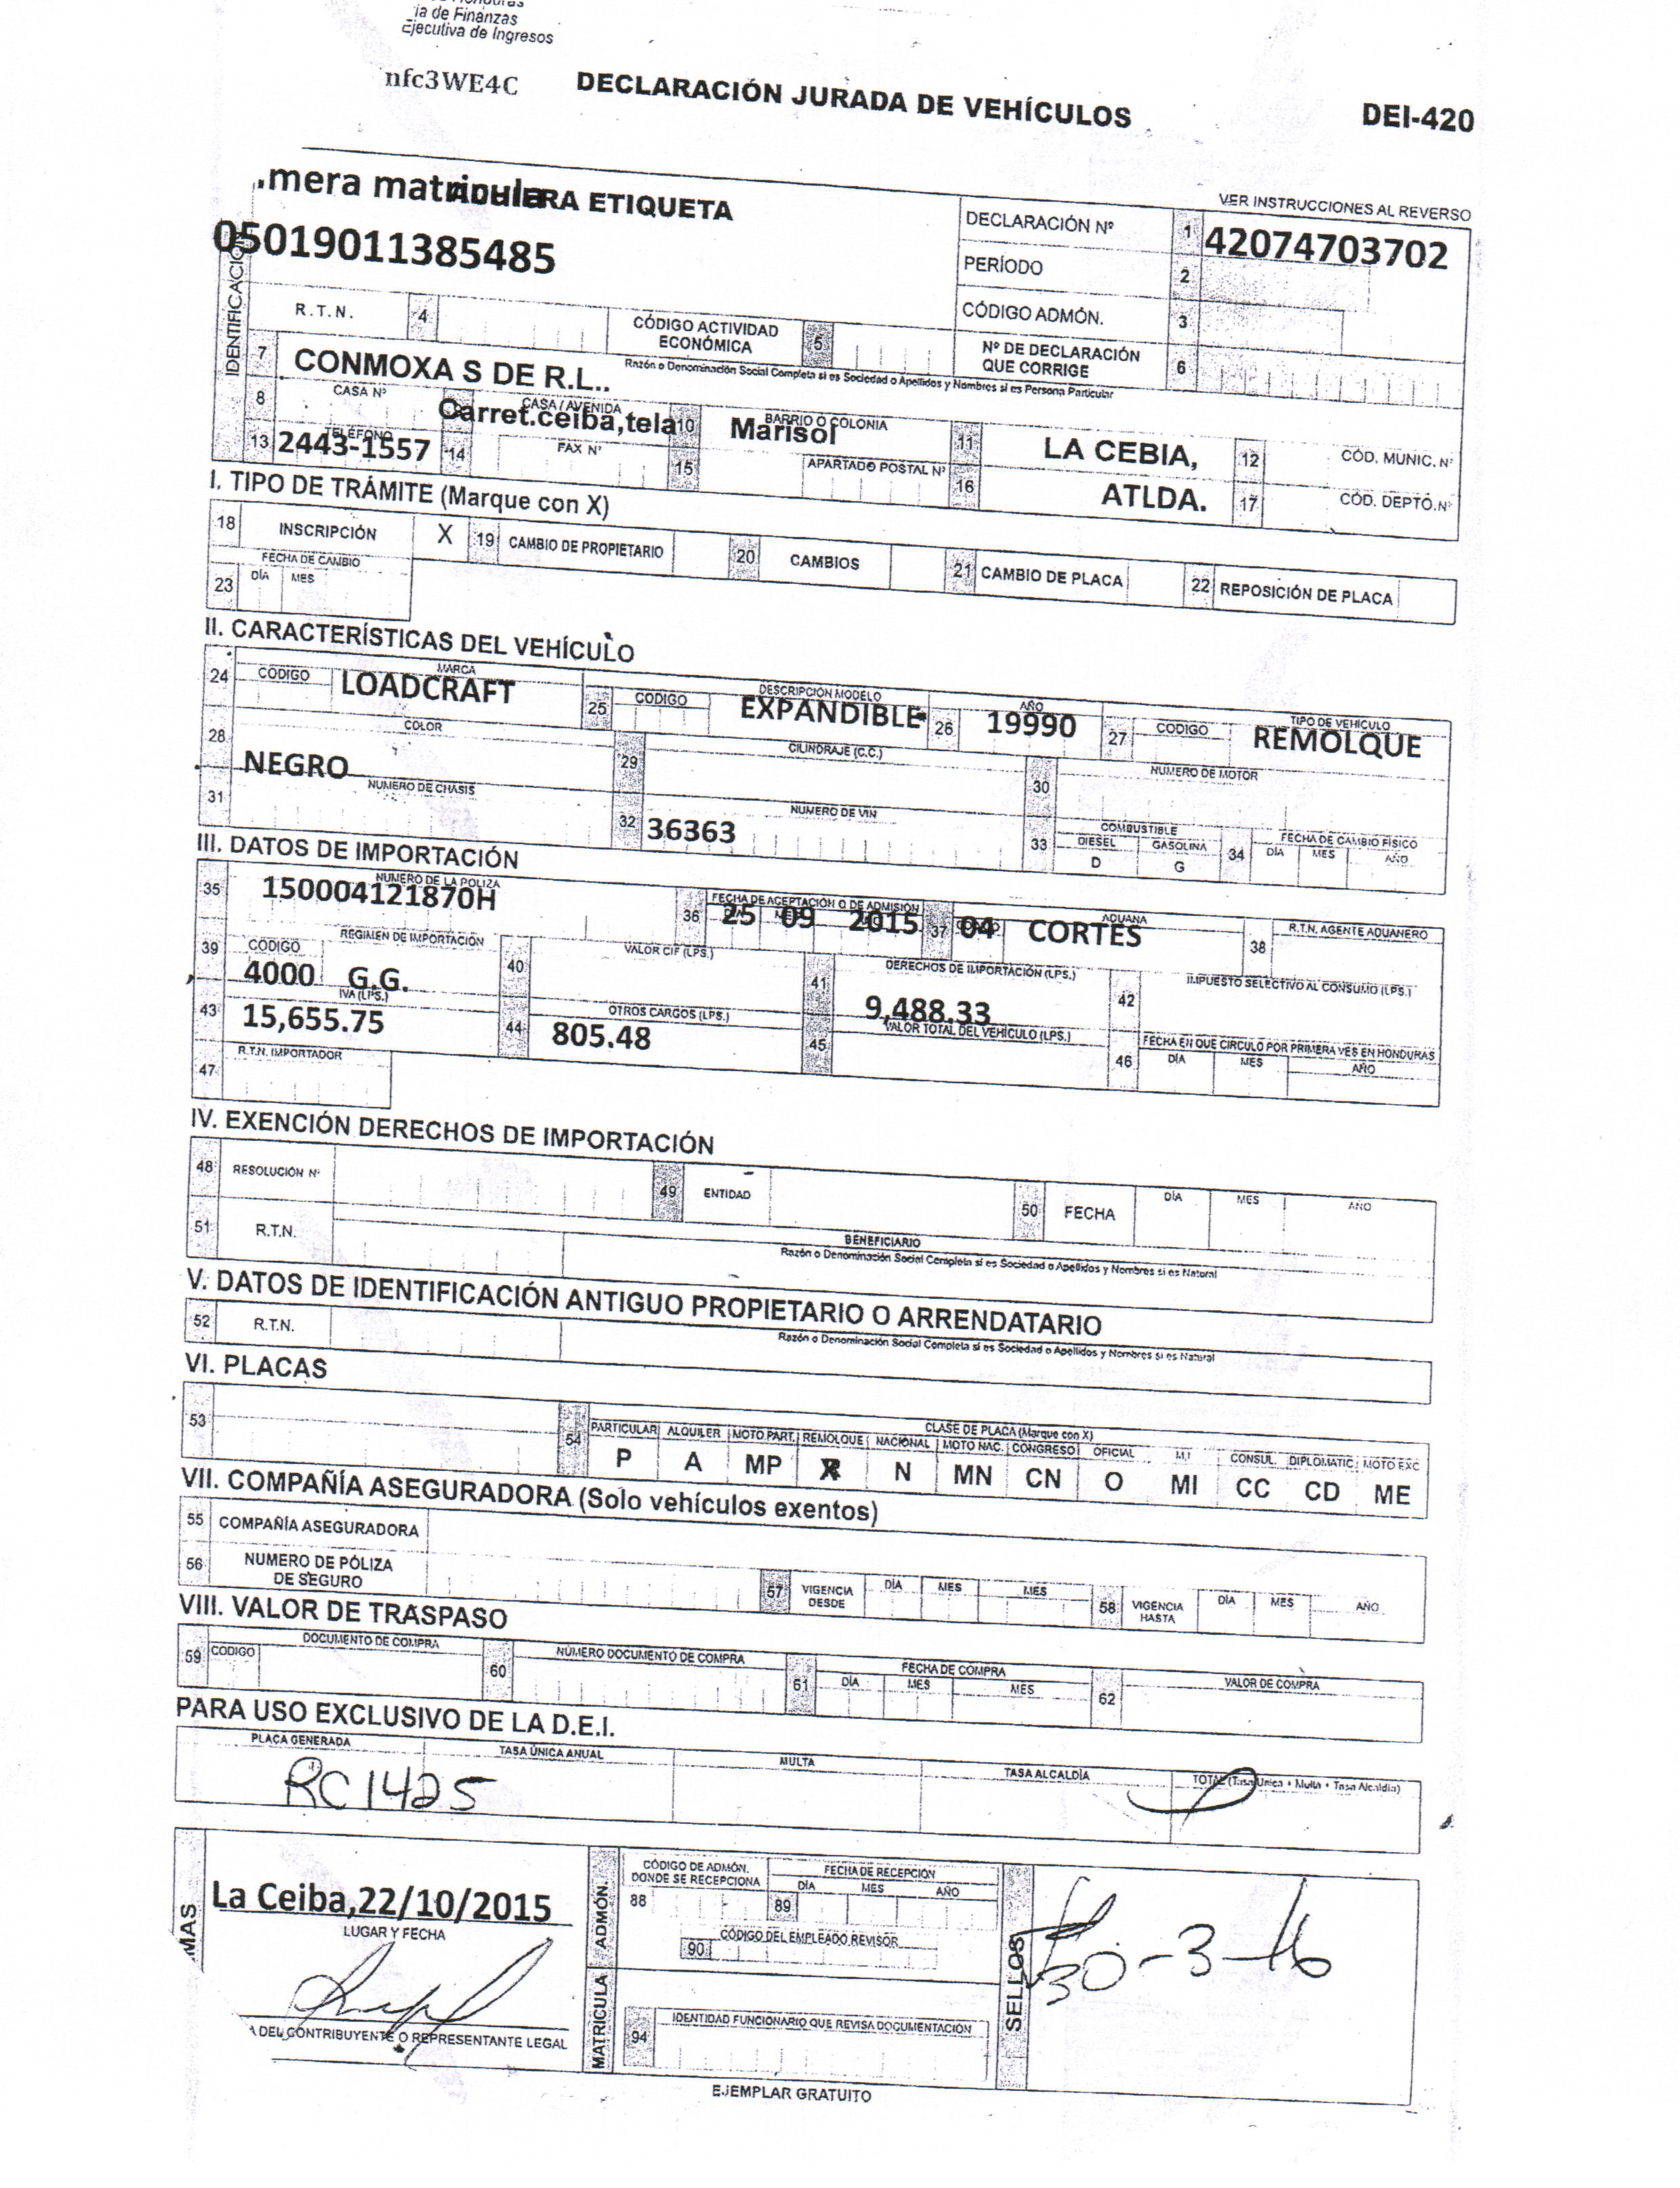 ia de Finanzas
Ejecutiva de Ingresos
nfc3WE4C DECLARACIÓN JURADA DE VEHÍCULOS DEI-420
VER INSTRUCCIONES AL REVERSO
.mera matricula ETIQUETA
05019011385485
IDENTIFICACIÓN
DECLARACIÓN Nº 1 42074703702
PERÍODO 2
CÓDIGO ADMÓN. 3
R.T.N. 4 CÓDIGO ACTIVIDAD ECONÓMICA 5 Nº DE DECLARACIÓN QUE CORRIGE 6
7 CONMOXA S DE R.L..
Razón o Denominación Social Completa si es Sociedad o Apellidos y Nombres si es Persona Particular
8 CASA Nº CASA / AVENIDA Carret.ceiba,tela 10 BARRIO O COLONIA Marisol 11 LA CEBIA, 12 CÓD. MUNIC. Nº
13 TELÉFONO 2443-1557 14 FAX Nº 15 APARTADO POSTAL Nº 16 ATLDA. 17 CÓD. DEPTO.Nº
I. TIPO DE TRÁMITE (Marque con X)
18 INSCRIPCIÓN X 19 CAMBIO DE PROPIETARIO 20 CAMBIOS 21 CAMBIO DE PLACA 22 REPOSICIÓN DE PLACA
FECHA DE CAMBIO
23 DÍA MES
II. CARACTERÍSTICAS DEL VEHÍCULO
24 CODIGO MARCA LOADCRAFT 25 CODIGO DESCRIPCIÓN MODELO EXPANDIBLE 26 AÑO 19990 27 CODIGO TIPO DE VEHICULO REMOLQUE
28 COLOR NEGRO 29 CILINDRAJE (C.C.) 30 NUMERO DE MOTOR
31 NUMERO DE CHASIS 32 NUMERO DE VIN 36363 33 COMBUSTIBLE DIESEL D GASOLINA G 34 FECHA DE CAMBIO FÍSICO DÍA MES AÑO
III. DATOS DE IMPORTACIÓN
35 NUMERO DE LA POLIZA 150004121870H 36 FECHA DE ACEPTACIÓN O DE ADMISIÓN 25 09 2015 37 04 ADUANA CORTES 38 R.T.N. AGENTE ADUANERO
39 CODIGO REGIMEN DE IMPORTACIÓN 4000 G.G. 40 VALOR CIF (LPS.) 41 DERECHOS DE IMPORTACIÓN (LPS.) 9,488.33 42 IMPUESTO SELECTIVO AL CONSUMO (LPS.)
43 IVA (LPS.) 15,655.75 44 OTROS CARGOS (LPS.) 805.48 45 VALOR TOTAL DEL VEHICULO (LPS.) 46 FECHA EN QUE CIRCULO POR PRIMERA VES EN HONDURAS DÍA MES AÑO
47 R.T.N. IMPORTADOR
IV. EXENCIÓN DERECHOS DE IMPORTACIÓN
48 RESOLUCIÓN Nº 49 ENTIDAD 50 FECHA DÍA MES AÑO
51 R.T.N. BENEFICIARIO
Razón o Denominación Social Completa si es Sociedad o Apellidos y Nombres si es Natural
V. DATOS DE IDENTIFICACIÓN ANTIGUO PROPIETARIO O ARRENDATARIO
52 R.T.N. Razón o Denominación Social Completa si es Sociedad o Apellidos y Nombres si es Natural
VI. PLACAS
53 54 CLASE DE PLACA (Marque con X)
PARTICULAR ALQUILER MOTO PART. REMOLQUE NACIONAL MOTO NAC. CONGRESO OFICIAL M.I CONSUL. DIPLOMATIC. MOTO EXC
P A MP X N MN CN O MI CC CD ME
VII. COMPAÑÍA ASEGURADORA (Solo vehículos exentos)
55 COMPAÑÍA ASEGURADORA
56 NUMERO DE PÓLIZA DE SEGURO 57 VIGENCIA DESDE DÍA MES MES 58 VIGENCIA HASTA DÍA MES AÑO
VIII. VALOR DE TRASPASO
59 CODIGO DOCUMENTO DE COMPRA 60 NÚMERO DOCUMENTO DE COMPRA 61 FECHA DE COMPRA DÍA MES MES 62 VALOR DE COMPRA
PARA USO EXCLUSIVO DE LA D.E.I.
PLACA GENERADA TASA ÚNICA ANUAL MULTA TASA ALCALDÍA TOTAL (Tasa Única + Multa + Tasa Alcaldía)
RC1425
MAS
La Ceiba,22/10/2015
LUGAR Y FECHA
A DEL CONTRIBUYENTE O REPRESENTANTE LEGAL
MATRICULA ADMÓN.
CÓDIGO DE ADMÓN. DONDE SE RECEPCIONA 88
FECHA DE RECEPCIÓN DÍA MES AÑO 89
CÓDIGO DEL EMPLEADO REVISOR 90
IDENTIDAD FUNCIONARIO QUE REVISA DOCUMENTACIÓN 94
SELLOS
30-3-16
EJEMPLAR GRATUITO